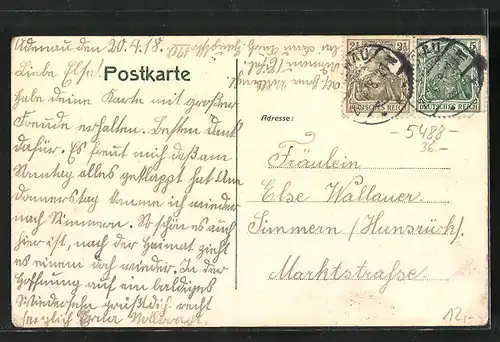 Adenau den 20.4.18.
Liebe Else!
Habe deine Karte mit großer
Freude erhalten. Besten dank
dafür. Es freut mich daß am
Sonntag alles geklappt hat. Am
donnerstag komme ich wieder
nach Simmern. So schön es auch
hier ist, nach der Heimat zieht
es einem doch wieder. In der
Hoffnung auf ein baldiges
Wiedersehn grüßt dich recht
herzlich Erna
Postkarte
2½ 2½
DEUTSCHES REICH
5
DEUTSCHES REICH
Adresse:
5488-
36.-
Fräulein
Else Wallauer
Simmern (Hunsrück)
Marktstrafse
12,-